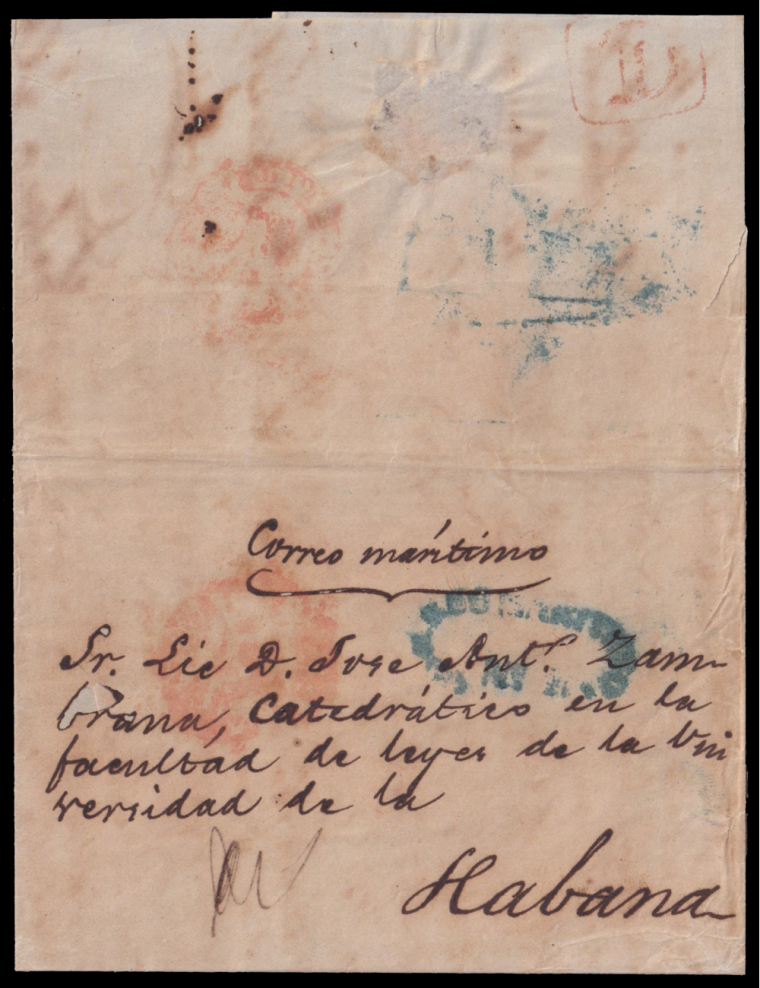 Correo marítimo
Sr. Lic D. Jose Ant.º Zam-
brana, Catedrático en la
facultad de leyes de la Uni
versidad de la
Habana